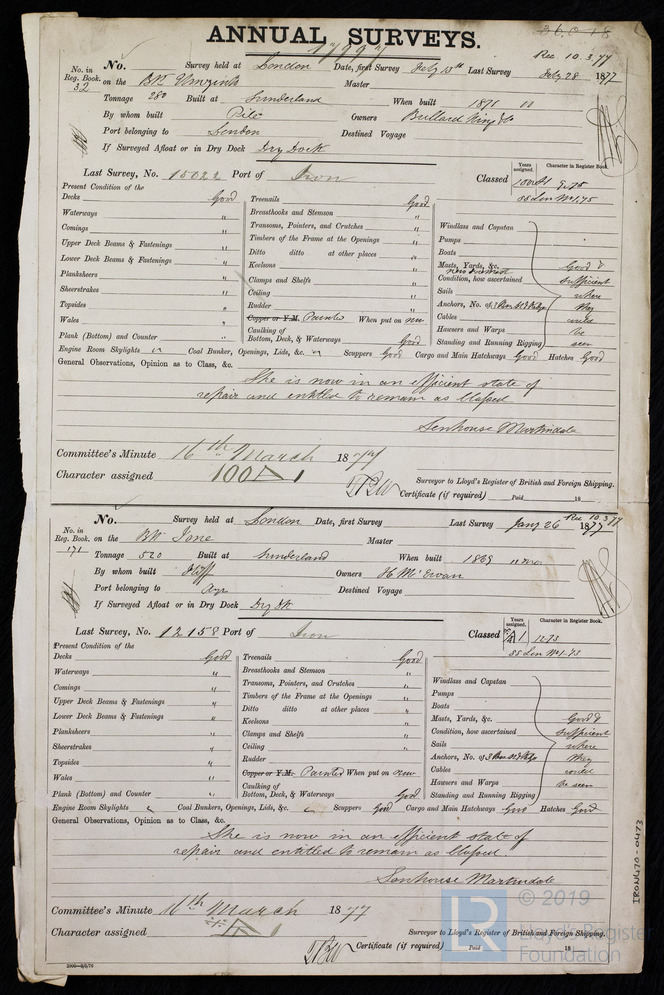 ANNUAL SURVEYS.
17997
Rec 10.3.77
No. Survey held at London Date, first Survey Feby 15th Last Survey Feby 28 1877
No. in Reg. Book. 32 on the Bk Umzinto Master
Tonnage 280 Built at Sunderland When built 1871 11
By whom built Pile Owners Bullard King & Co
Port belonging to London Destined Voyage
If Surveyed Afloat or in Dry Dock Dry Dock
Last Survey, No. 15022 Port of Iron Classed
Years assigned. Character in Register Book.
100A1 9.75
SS Lon No1.75
Present Condition of the
Decks Good Treenails Good
Waterways " Breasthooks and Stemson " Windlass and Capstan
Comings " Transoms, Pointers, and Crutches " Pumps
Upper Deck Beams & Fastenings " Timbers of the Frame at the Openings " Boats
Lower Deck Beams & Fastenings " Ditto ditto at other places " Masts, Yards, &c. Good &
Planksheers " Keelsons " Condition, how ascertained sufficient
Sheerstrakes " Clamps and Shelfs " Sails where
Topsides " Ceiling " Anchors, No. of they
Wales " Rudder " Cables
Copper or Y.M. Painted When put on now Hawsers and Warps be
Plank (Bottom) and Counter " Caulking of Bottom, Deck, & Waterways Good Standing and Running Rigging seen
Engine Room Skylights " Coal Bunker, Openings, Lids, &c. " Scuppers Good Cargo and Main Hatchways Good Hatches Good
General Observations, Opinion as to Class, &c.
She is now in an efficient state of
repair and entitled to remain as Classed
Senhouse Martindale
Committee's Minute 16th March 1877
Character assigned 100A1
Surveyor to Lloyd's Register of British and Foreign Shipping.
Certificate (if required) Paid 18
Rec 10.3.77
No. Survey held at London Date, first Survey Last Survey Jany 26 1877
No. in Reg. Book. 171 on the Bk Ione Master
Tonnage 520 Built at Sunderland When built 1869
By whom built Iliff Owners H McEwan
Port belonging to Ayr Destined Voyage
If Surveyed Afloat or in Dry Dock Dry Dk
Last Survey, No. 12158 Port of Iron Classed
Years assigned. Character in Register Book.
A1 12.73
SS Lon No1.73
Present Condition of the
Decks Good Treenails Good
Waterways " Breasthooks and Stemson " Windlass and Capstan
Comings " Transoms, Pointers, and Crutches " Pumps
Upper Deck Beams & Fastenings " Timbers of the Frame at the Openings " Boats
Lower Deck Beams & Fastenings " Ditto ditto at other places " Masts, Yards, &c. Good &
Planksheers " Keelsons " Condition, how ascertained sufficient
Sheerstrakes " Clamps and Shelfs " Sails where
Topsides " Ceiling " Anchors, No. of they
Wales " Rudder " Cables could
Copper or Y.M. Painted When put on now Hawsers and Warps be seen
Plank (Bottom) and Counter " Caulking of Bottom, Deck, & Waterways Good Standing and Running Rigging
Engine Room Skylights " Coal Bunkers, Openings, Lids, &c. " Scuppers Good Cargo and Main Hatchways Good Hatches Good
General Observations, Opinion as to Class, &c.
She is now in an efficient state of
repair and entitled to remain as Classed.
Senhouse Martindale
Committee's Minute 16th March 1877
Character assigned A1
Surveyor to Lloyd's Register of British and Foreign Shipping.
Certificate (if required) Paid 18
IRON470-0473
© 2019
LR
Lloyd's Register
Foundation